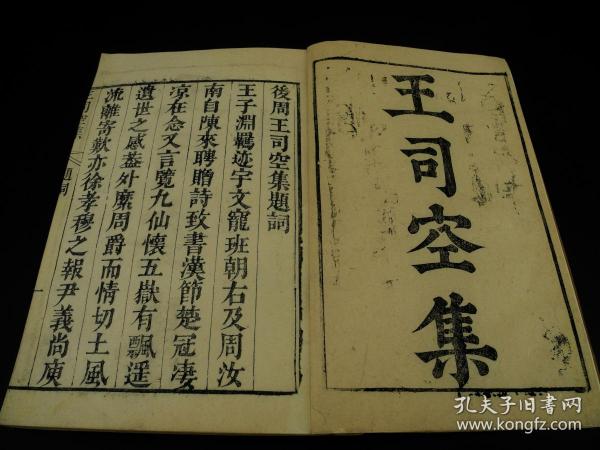 王司空集
後周王司空集題詞
王子淵羈迹宇文寵班朝右及周汝
南自陳來聘贈詩致書漢節楚冠凄
凉在念又言覽九仙懷五嶽有飄遥
遺世之感葢外縻周爵而情切土風
流離寄歎亦徐孝穆之報尹義尚庾
題詞
孔夫子旧书网
www.kongfz.com